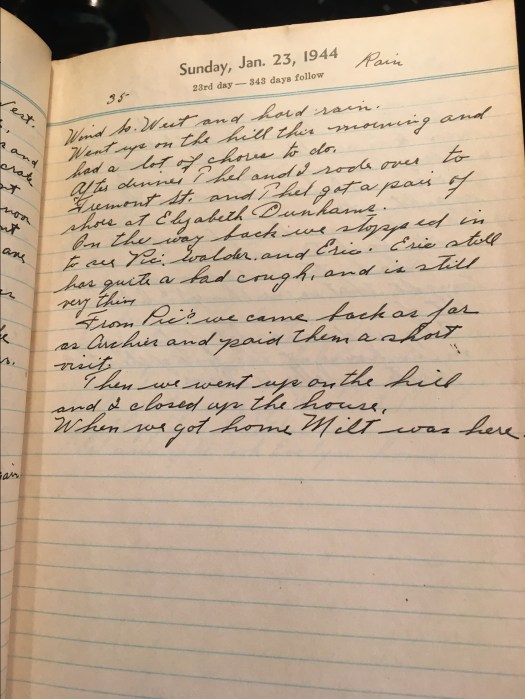 Sunday, Jan. 23, 1944
23rd day — 343 days follow
Rain
35
Wind So. West and hard rain.
Went up on the hill this morning and
had a lot of chores to do.
After dinner Thel and I rode over to
Fremont St. and Thel got a pair of
shoes at Elizabeth Dunhams.
On the way back we stopped in
to see Pic. walder. and Eric. Eric still
has quite a bad cough, and is still
very thin
From Pic's we came back as far
as Archies and paid them a short
visit.
Then we went up on the hill
and I closed up the house.
When we got home Milt was here.